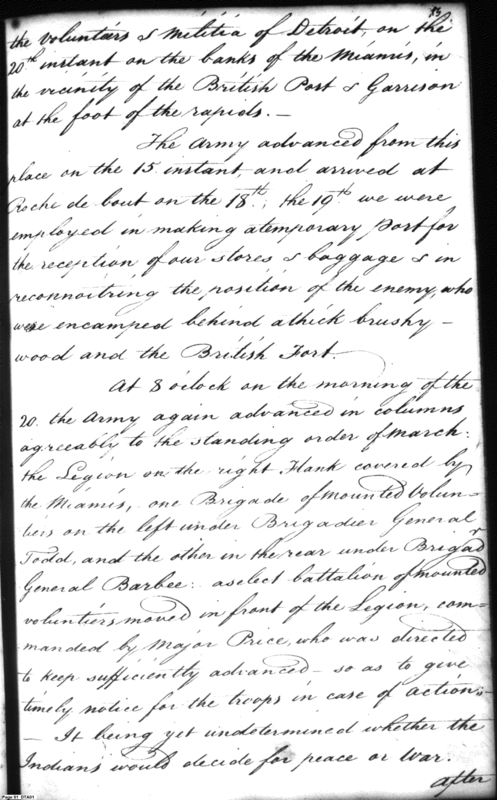 13
the voluntiers & militia of Detroit, on the
20th instant on the banks of the Miamis, in
the vicinity of the British Post & Garrison
at the foot of the rapids. —
The Army advanced from this
place on the 15 instant, and arrived at
Roche de bout on the 18th; the 19th we were
employed in making a temporary Post for
the reception of our stores & baggage & in
reconnoitring the position of the enemy, who
were encamped behind a thick brushy –
wood and the British Fort.
At 8 oClock on the morning of the
20. the Army again advanced in columns
agreeably to the standing order of March:
the Legion on the right Flank covered by
the Miamis, one Brigade of mounted Volun-
tiers on the left under Brigadier General
Todd, and the other in the rear under Brigadr
General Barbee: a select battalion of mounted
voluntiers moved in front of the Legion, com-
manded by Major Price, who was directed
to keep sufficiently advanced – so as to give
timely notice for the troops in case of action –
— It being yet undetermined whether the
Indians would decide for peace or War.
after
Page 81 DTA01